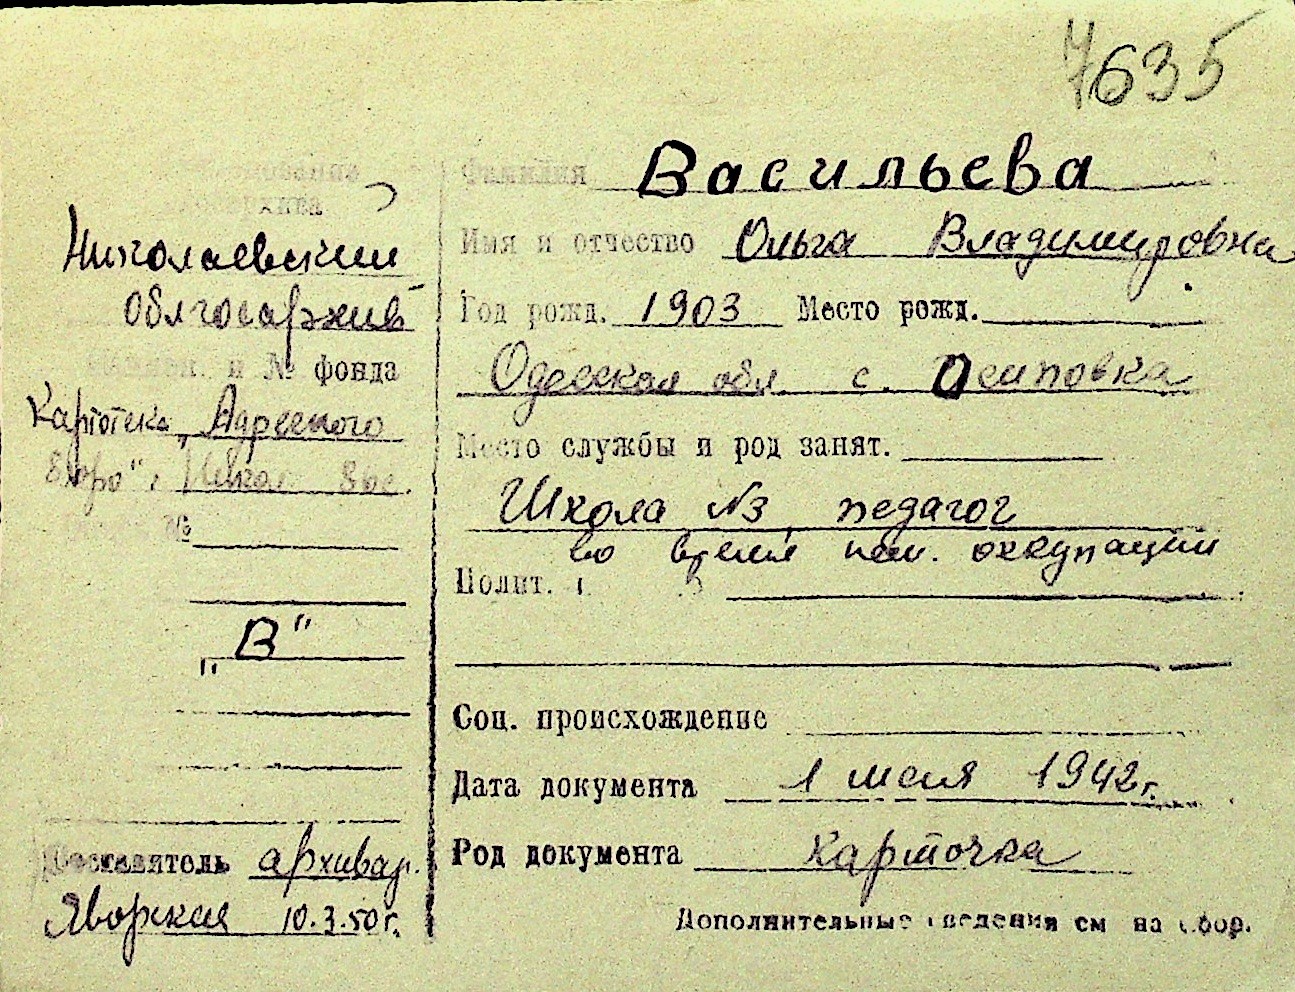 7635
Фамилия Васильева
Имя и отчество Ольга Владимировна
Год рожд. 1903 Место рожд.
Одесская обл. с. Осиповка
Место службы и род занят.
Школа №3, педагог
во время нем. оккупации
Полит.
Соц. происхождение
Дата документа 1 июня 1942 г.
Род документа карточка
Дополнительные сведения см на обор.
Николаевский
облгосархив
и № фонда
Картотека „Адресного
бюро"
№
„В"
Составитель архивар.
Яворская 10.3.50 г.